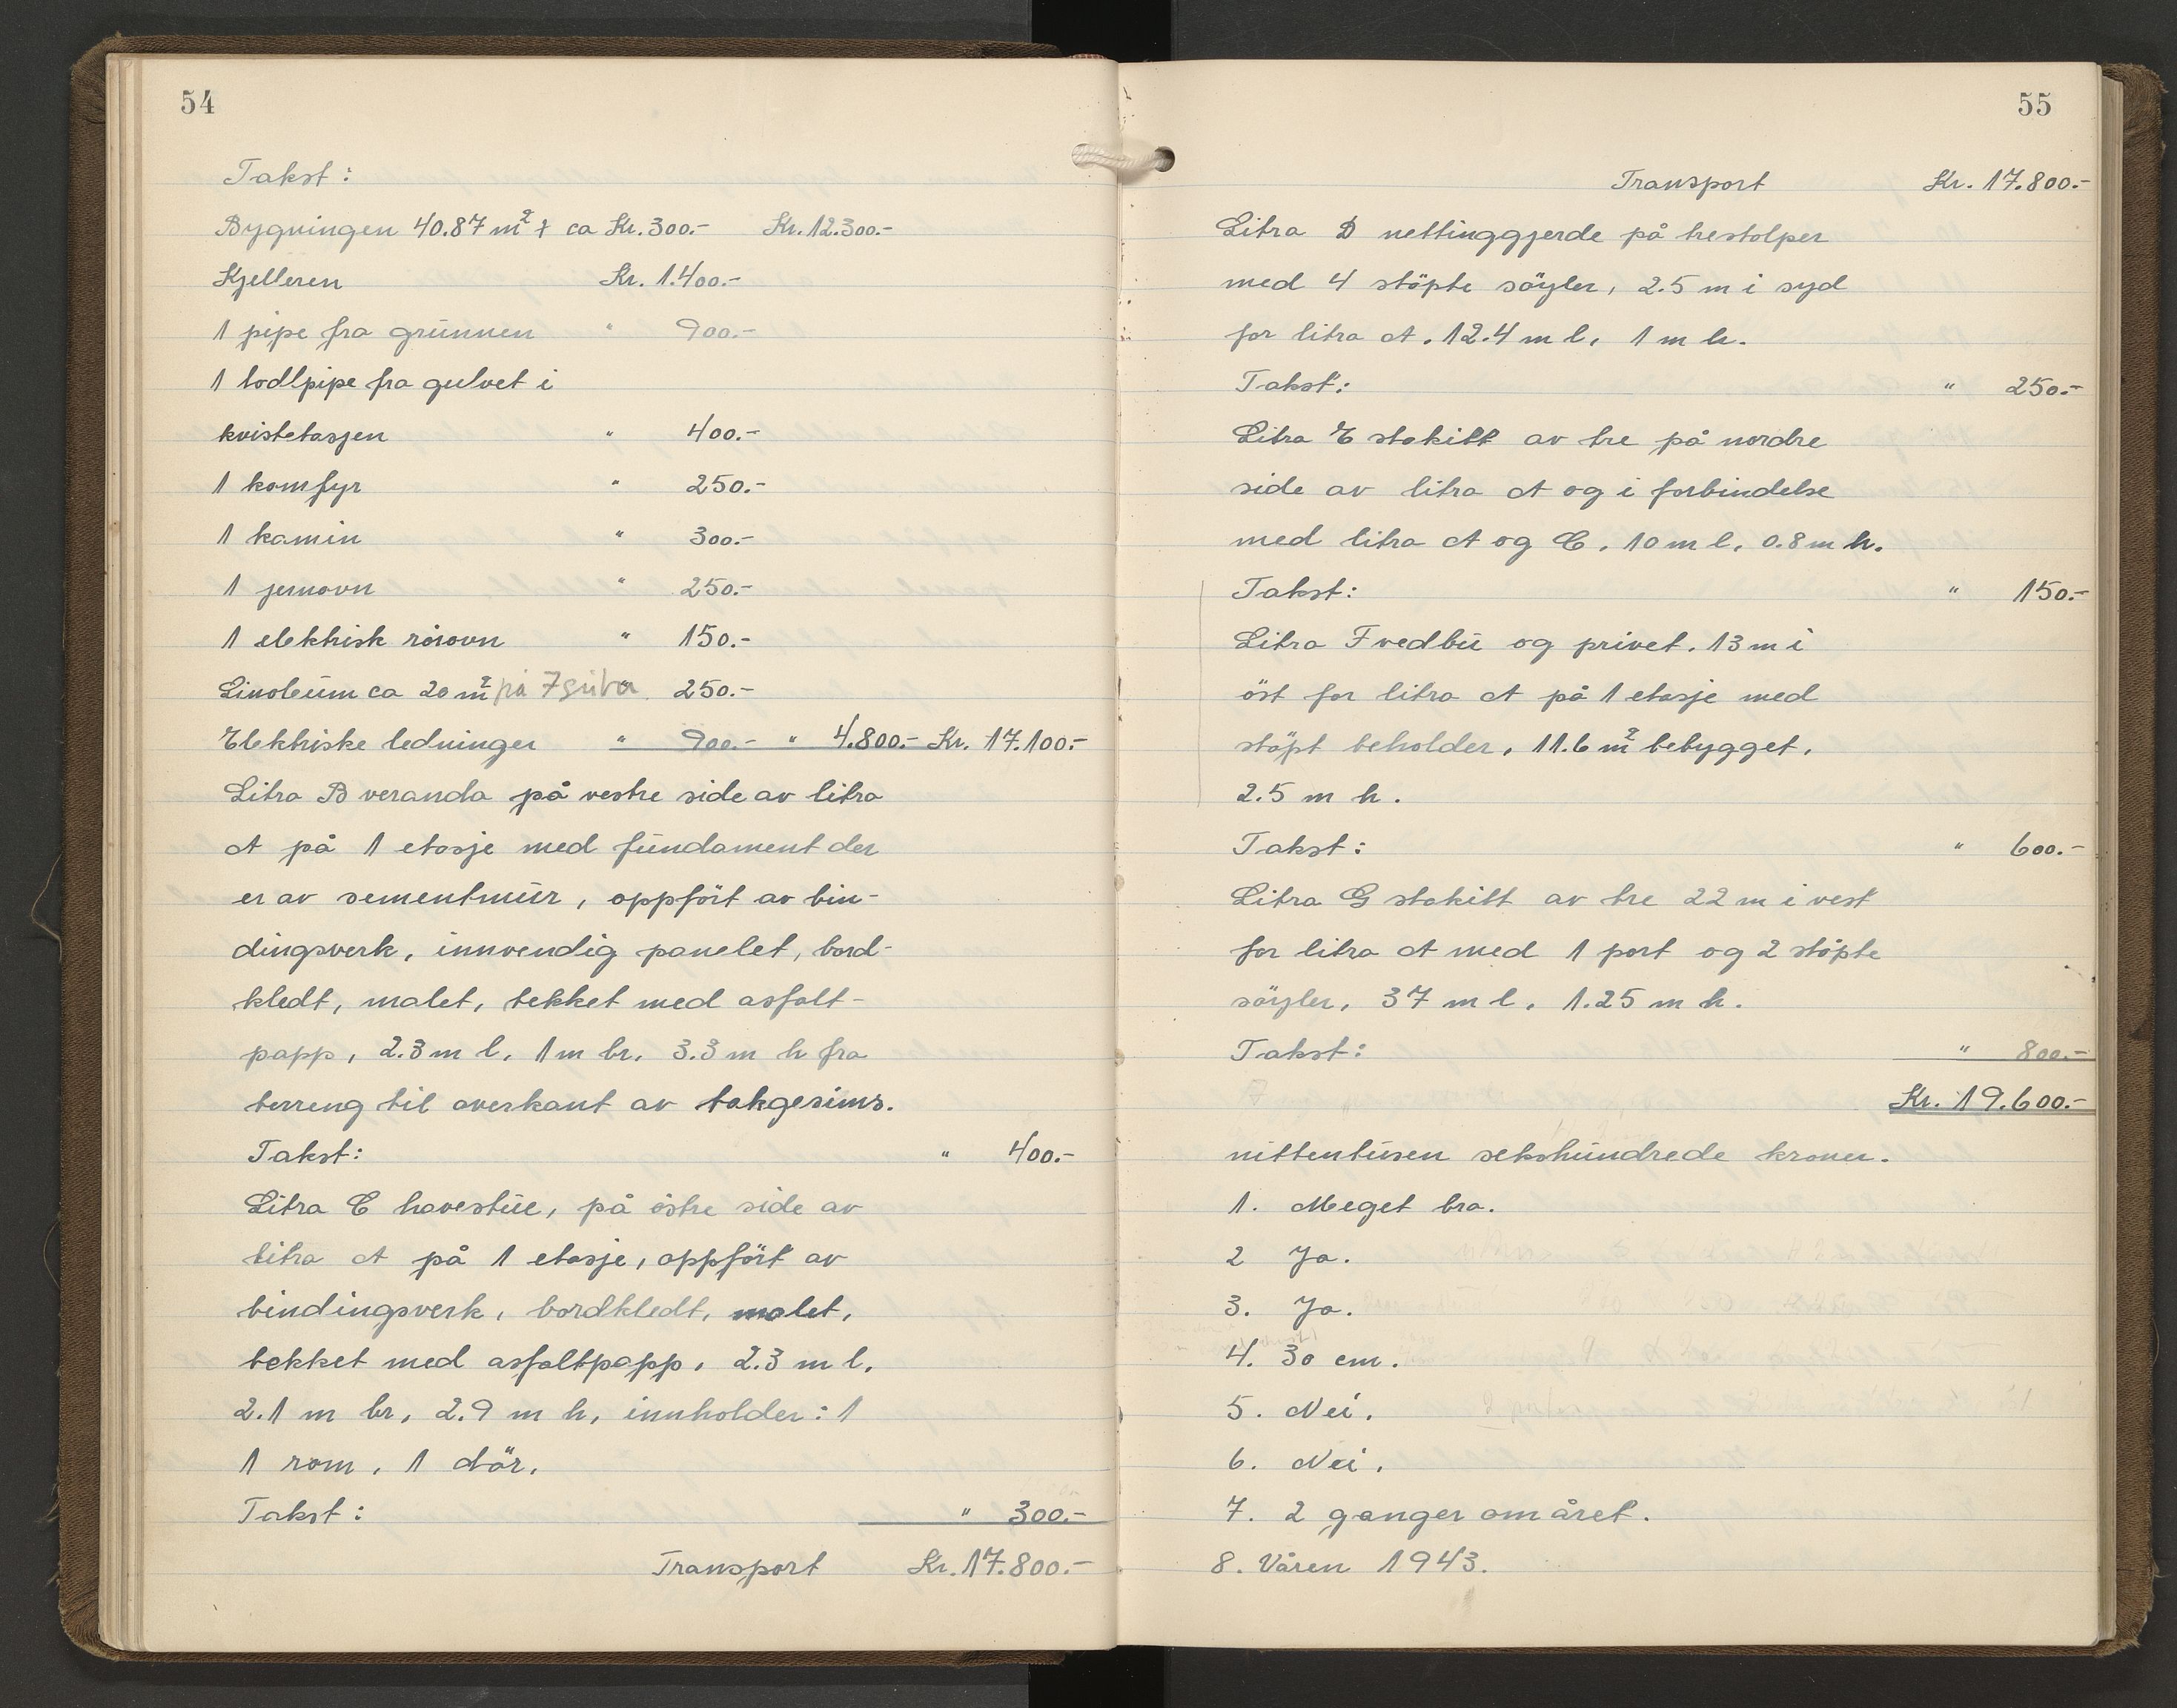 54
Takst:
Bygningen 40.87 m² à ca Kr. 300.- Kr. 12.300.-
Kjelleren Kr. 1.400.-
1 pipe fra grunnen " 900.-
1 lodlpipe fra gulvet i
kvistetasjen " 400.-
1 komfyr " 250.-
1 kamin " 300.-
1 jernovn " 250.-
1 elektrisk rörovn " 150.-
Linoleum ca 20 m² på 7 gulver " 250.-
Elektriske ledninger " 900.- " 4.800.- Kr. 17.100.-
Litra B veranda på vestre side av litra
A på 1 etasje med fundament der
er av sementmur, oppfört av bin-
dingsverk, innvendig panelet, bord-
kledt, malet, tekket med asfalt-
papp, 2.3 m l, 1 m br. 3.3 m h fra
terreng til overkant av takgesims.
Takst: " 400.-
Litra C havestue, på östre side av
litra A på 1 etasje, oppfört av
bindingsverk, bordkledt, malet,
tekket med asfaltpapp, 2.3 m l,
2.1 m br, 2.9 m h, innholder: 1
1 rom, 1 dör.
Takst: " 300.-
Transport Kr. 17.800.-
55
Transport Kr. 17.800.-
Litra D nettinggjerde på trestolper
med 4 stöpte söyler, 2.5 m i syd
for litra A. 12.4 m l, 1 m h.
Takst: " 250.-
Litra E stakitt av tre på nordre
side av litra A og i forbindelse
med litra A og C, 10 m l, 0.8 m h.
Takst: " 150.-
Litra F vedbu og privet, 13 m i
öst for litra A på 1 etasje med
stöpt beholder, 11.6 m² bebygget,
2.5 m h.
Takst: " 600.-
Litra G stakitt av tre 22 m i vest
for litra A med 1 port og 2 stöpte
söyler, 37 m l, 1.25 m h.
Takst: " 800.-
Kr. 19.600.-
nittentusen sekshundrede kroner.
1. Meget bra.
2 Ja.
3. Ja.
4. 30 cm.
5. Nei.
6. Nei.
7. 2 ganger om året.
8. Våren 1943.